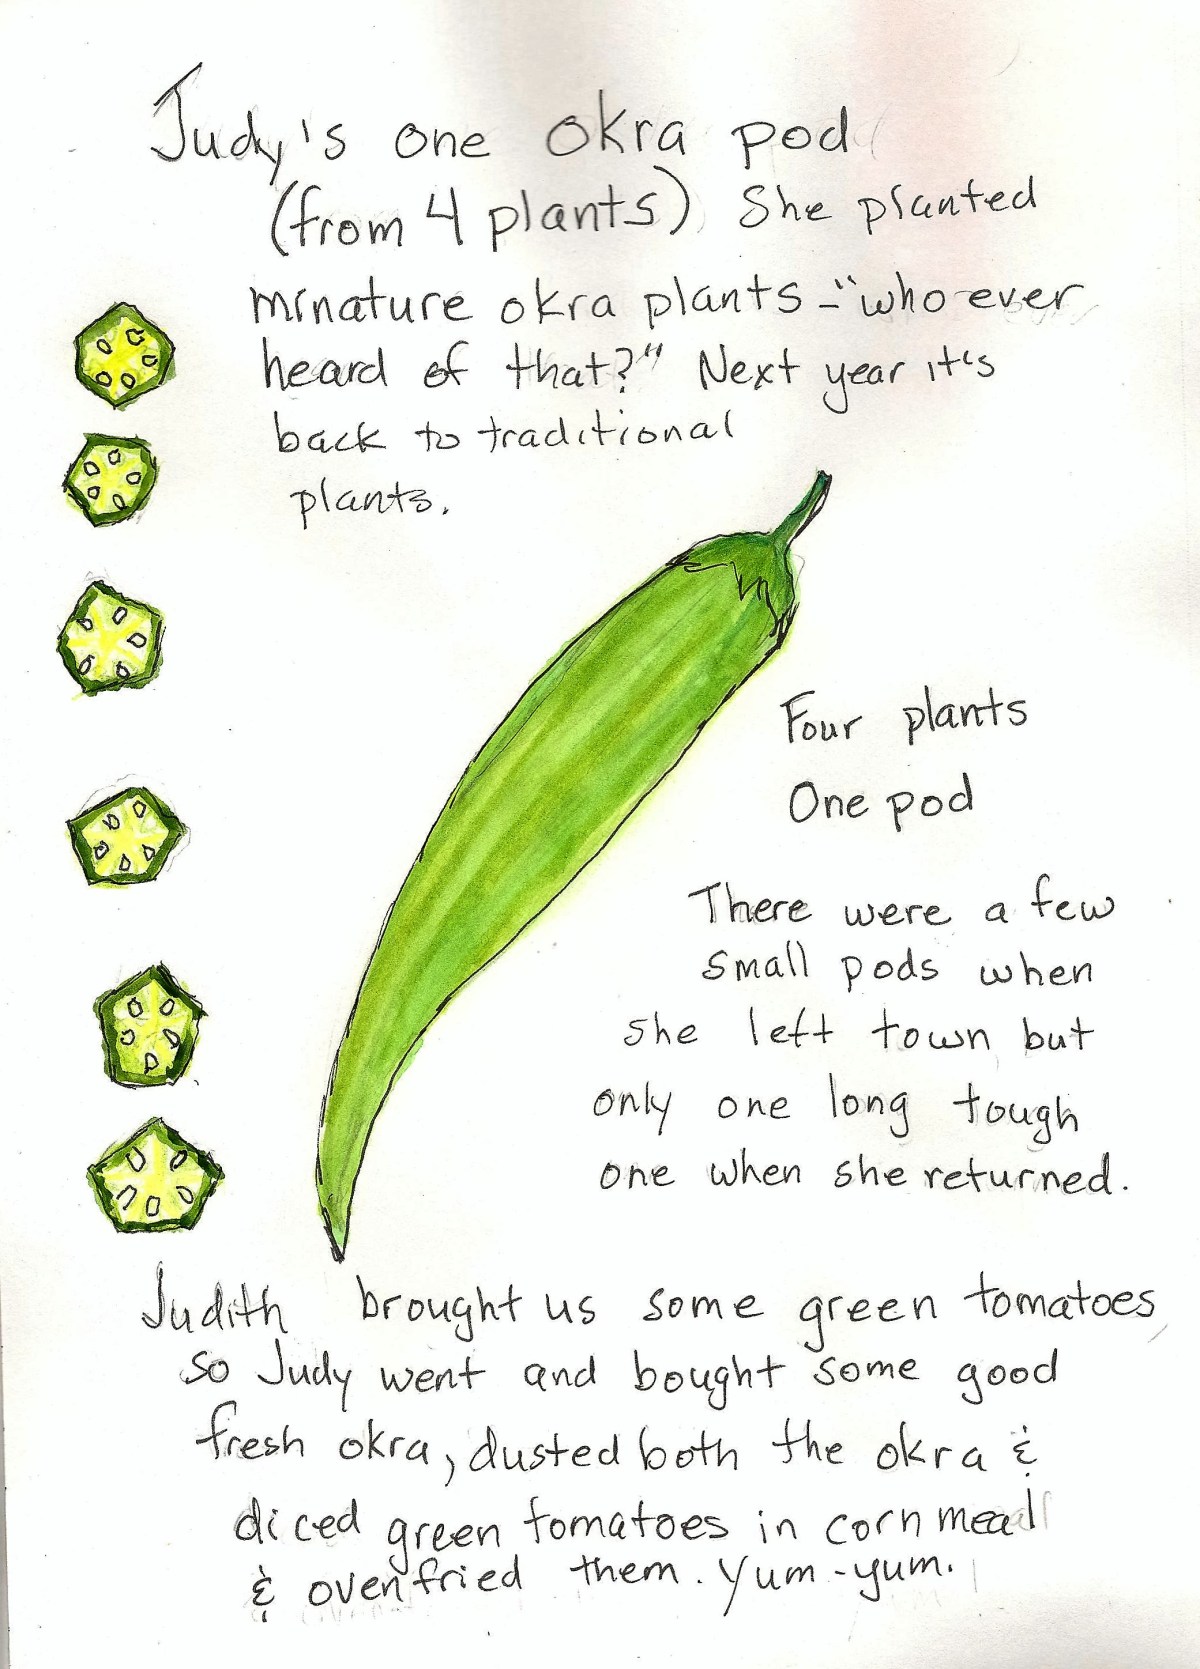 Judy's one okra pod
(from 4 plants) She planted
minature okra plants - "who ever
heard of that?" Next year it's
back to traditional
plants.
Four plants
One pod
There were a few
small pods when
she left town but
only one long tough
one when she returned.
Judith brought us some green tomatoes,
so Judy went and bought some good
fresh okra, dusted both the okra &
diced green tomatoes in corn meal
& oven fried them. Yum-yum.